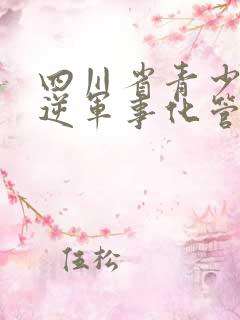 四川省青少
逆军事化管
伍松